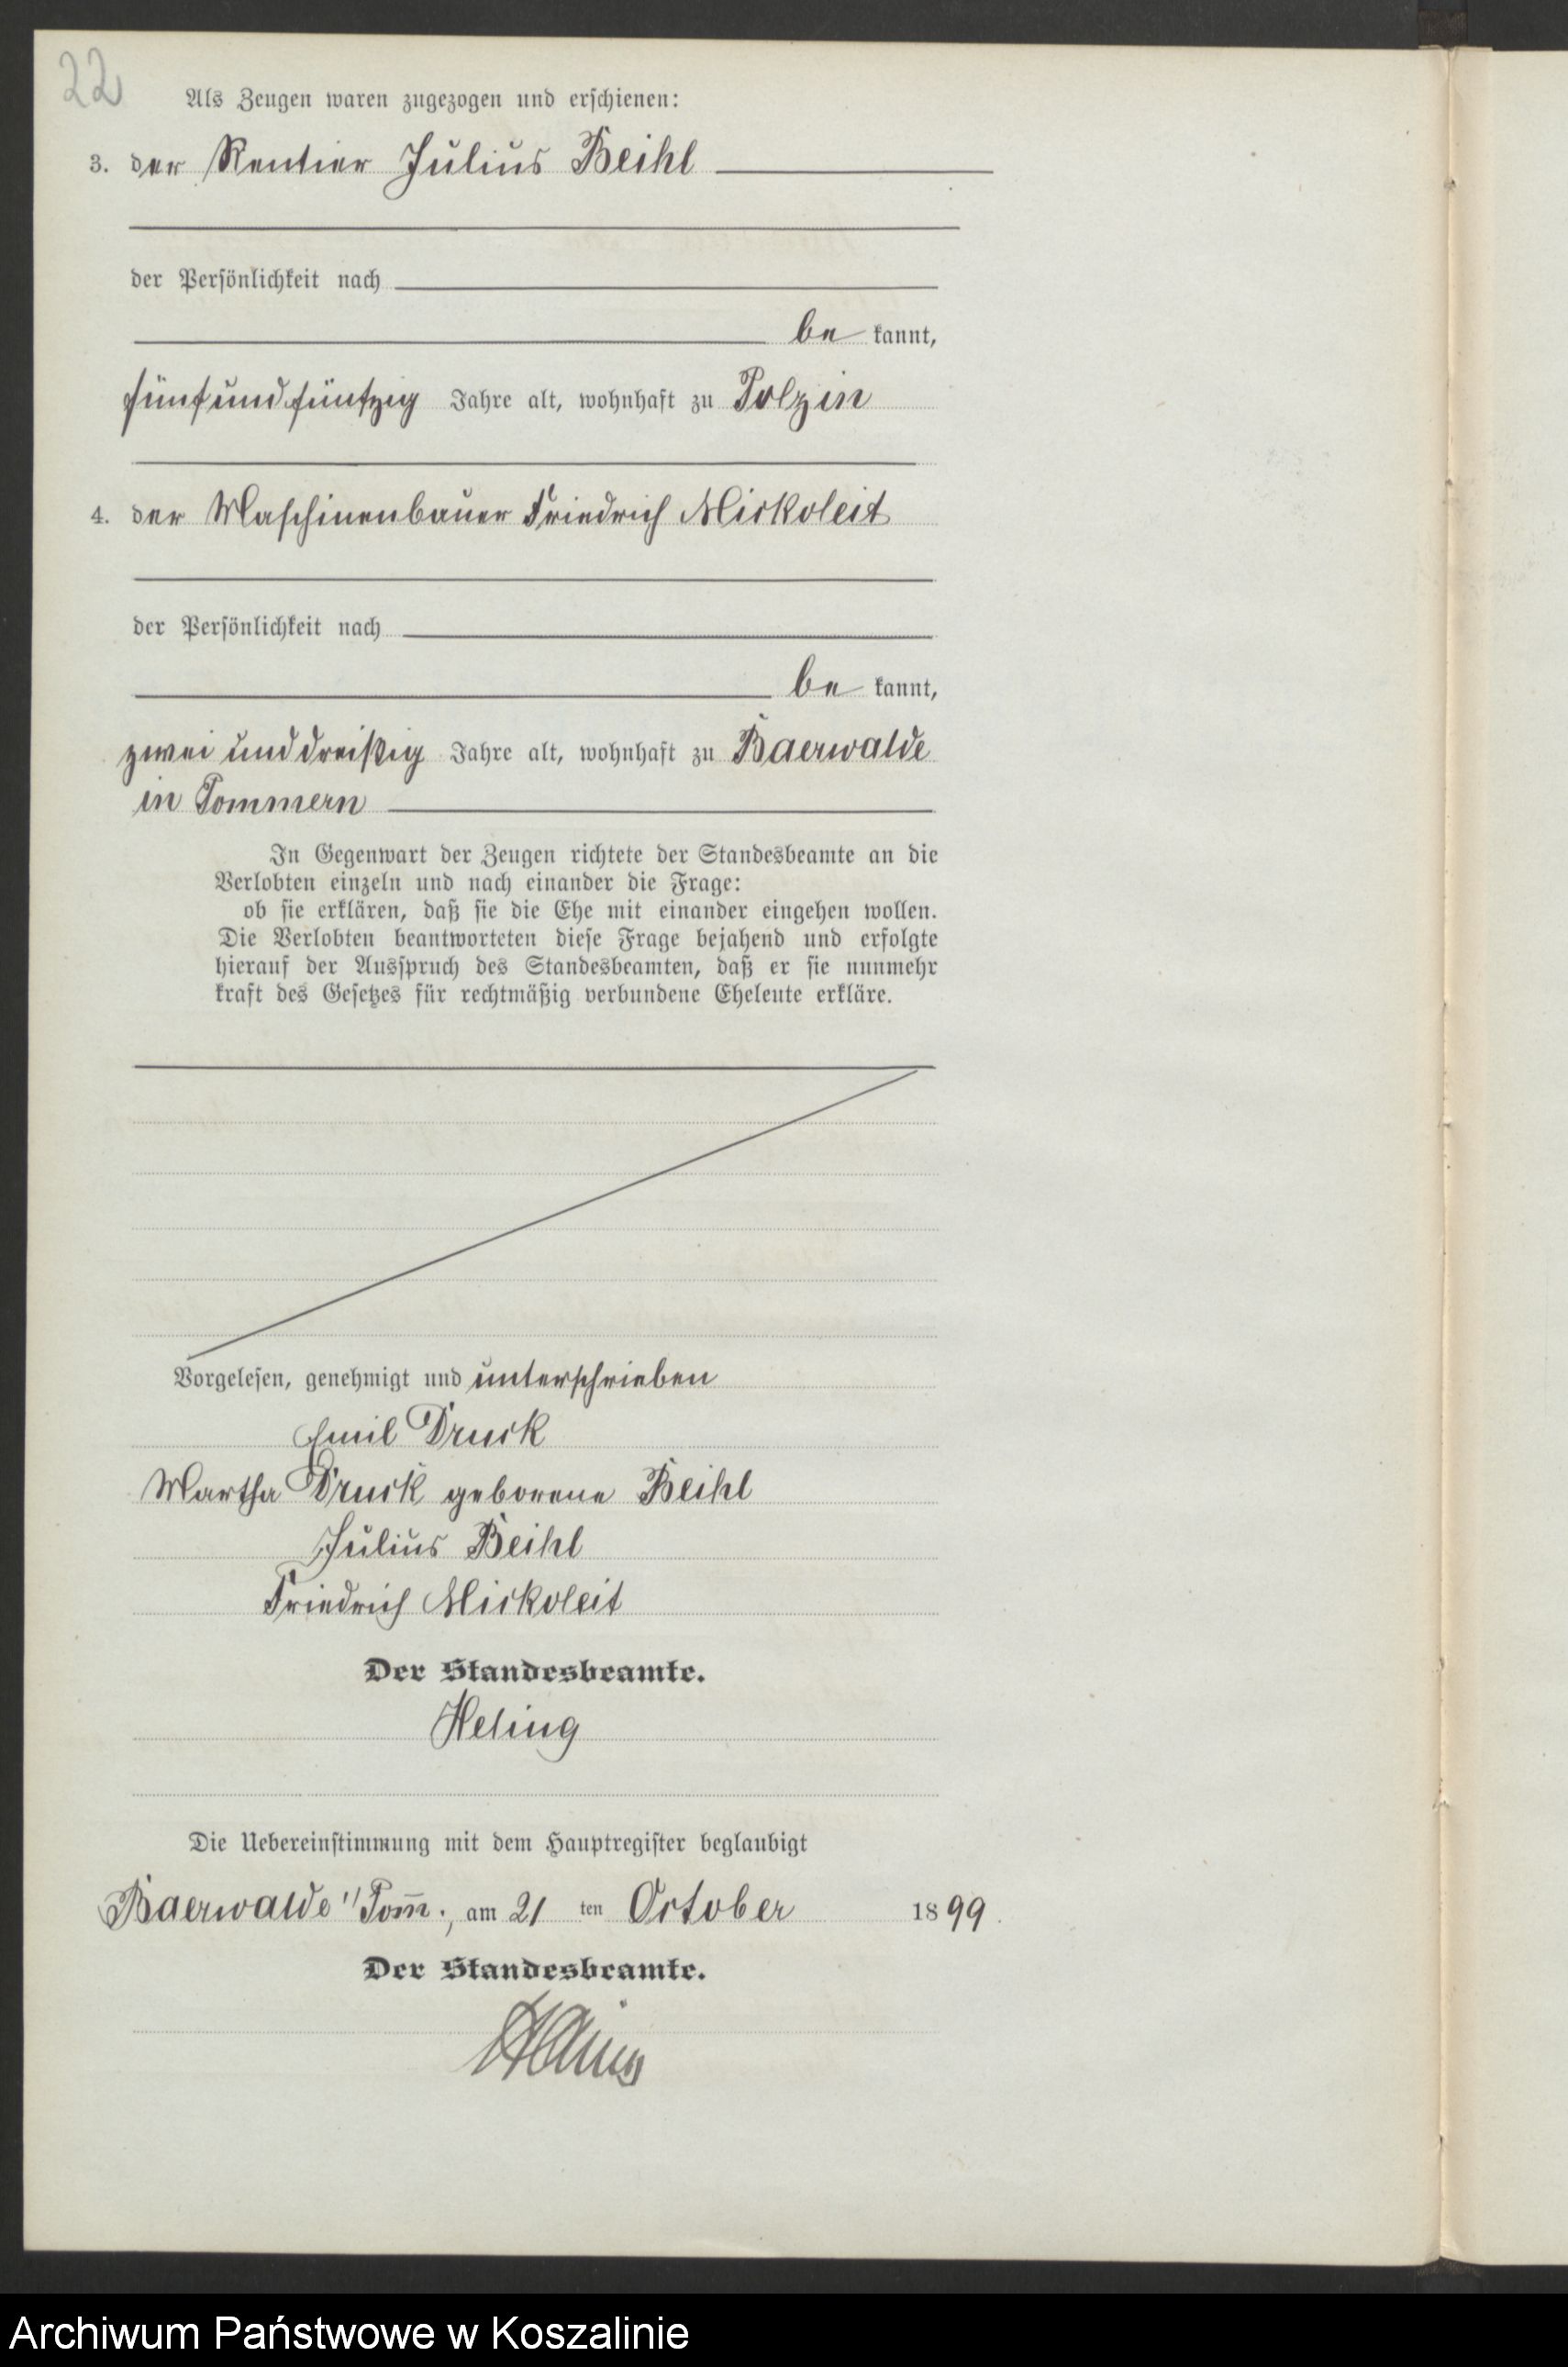 22
Als Zeugen waren zugezogen und erschienen:
3. der Rentier Julius Beihl
der Persönlichkeit nach
be kannt,
fünfundfünfzig Jahre alt, wohnhaft zu Polzin
4. der Maschinenbauer Friedrich Mickoleit
der Persönlichkeit nach
be kannt,
zwei und dreißig Jahre alt, wohnhaft zu Baerwalde
in Pommern
In Gegenwart der Zeugen richtete der Standesbeamte an die
Verlobten einzeln und nach einander die Frage:
ob sie erklären, daß sie die Ehe mit einander eingehen wollen.
Die Verlobten beantworteten diese Frage bejahend und erfolgte
hierauf der Ausspruch des Standesbeamten, daß er sie nunmehr
kraft des Gesetzes für rechtmäßig verbundene Eheleute erkläre.
Vorgelesen, genehmigt und unterschrieben
Emil Druck
Martha Druck geborene Beihl
Julius Beihl
Friedrich Mickoleit
Der Standesbeamte.
Heling
Die Uebereinstimmung mit dem Hauptregister beglaubigt
Baerwalde i/Pom̅., am 21 ten October 1899.
Der Standesbeamte.
Archiwum Państwowe w Koszalinie